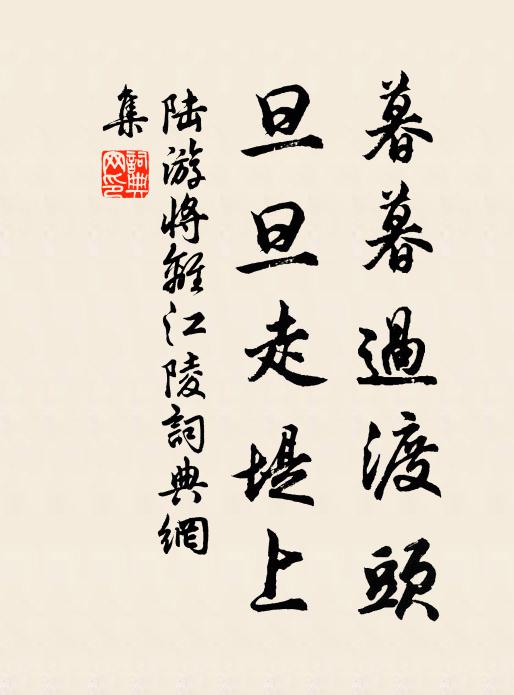 暮暮過渡頭
旦旦走堤上
陆游將離江陵詞典網
集
詞典
网印